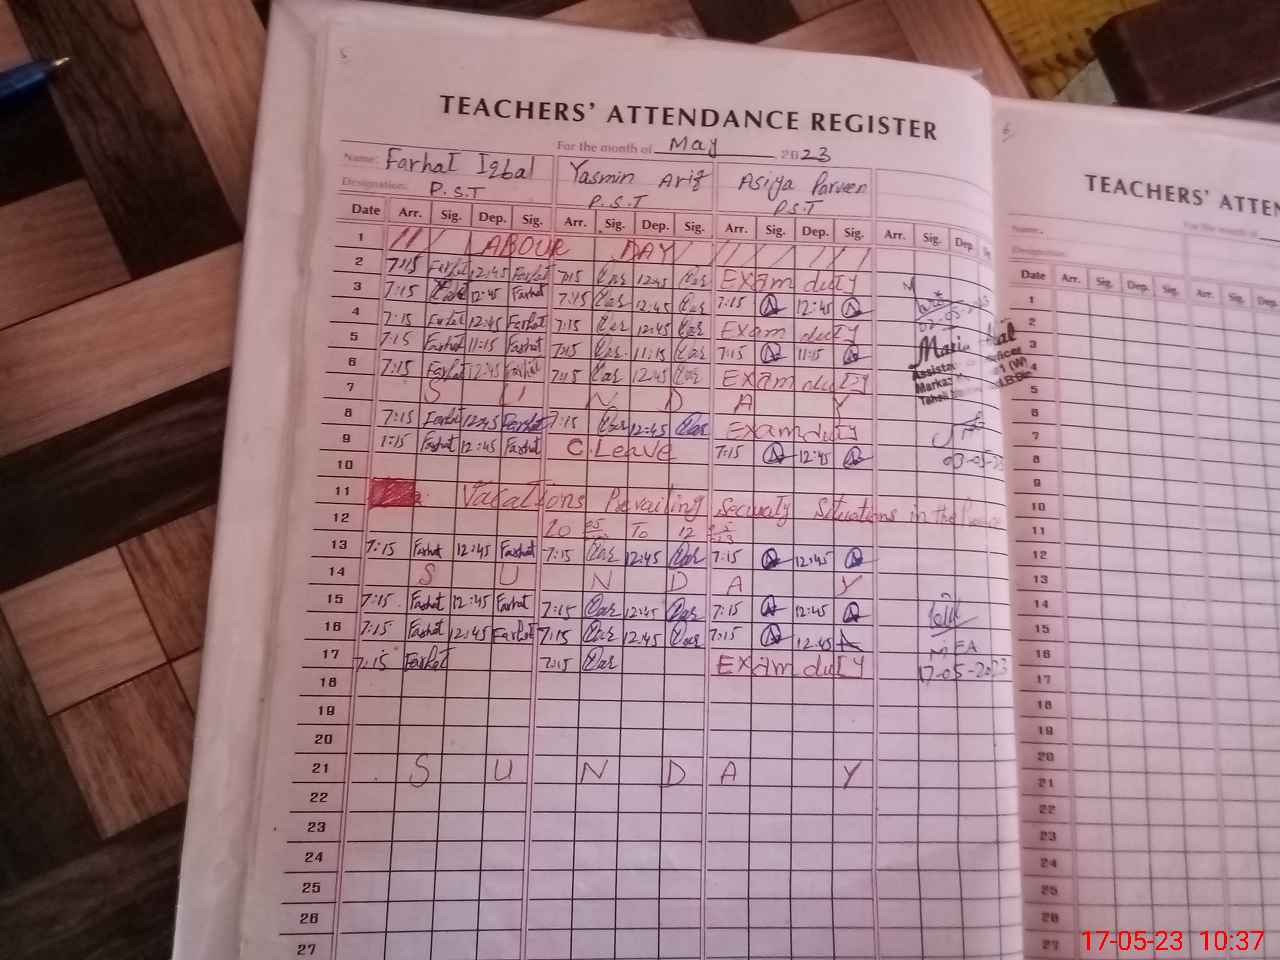 5
TEACHERS' ATTENDANCE REGISTER
For the month of May 2023
Name: Farhat Iqbal Yasmin Arif Asiya Parveen
Designation: P.S.T P.S.T P.S.T
Date Arr. Sig. Dep. Sig. Arr. Sig. Dep. Sig. Arr. Sig. Dep. Sig. Arr. Sig. Dep. S
1 LABOUR DAY
2 7:15 Farhat 12:45 Farhat 7:15 12:45 Exam duty
3 7:15 12:45 Farhat 7:15 12:45 7:15 12:45
02-05-
4 7:15 Farhat 12:45 Farhat 7:15 12:45 Exam duty
5 7:15 Farhat 11:15 Farhat 7:15 11:15 7:15 11:15
Maria
6 7:15 Farhat 12:45 Farhat 7:15 12:45 Exam duty
7 S U N D A Y
8 7:15 Farhat 12:45 Farhat 7:15 12:45 Exam duty
9 7:15 Farhat 12:45 Farhat C. Leave 7:15 12:45
03-05-
10
11 Vacations Prevailing Security Situations in the
12 To 12
13 7:15 Farhat 12:45 Farhat 7:15 12:45 7:15 12:45
14 S U N D A Y
15 7:15 Farhat 12:45 Farhat 7:15 12:45 7:15 12:45
16 7:15 Farhat 12:45 Farhat 7:15 12:45 7:15 12:45
MEA
17 7:15 Farhat 7:15 Exam duty 17-05-2023
18
19
20
21 S U N D A Y
22
23
24
25
26
27
6
TEACHERS' ATTEN
For the month of
Name:
Designation:
Date Arr. Sig. Dep. Sig. Arr. Sig. Dep.
1
2
3
4
5
6
7
8
9
10
11
12
13
14
15
16
17
18
19
20
21
22
23
24
25
26
27
17-05-23 10:37